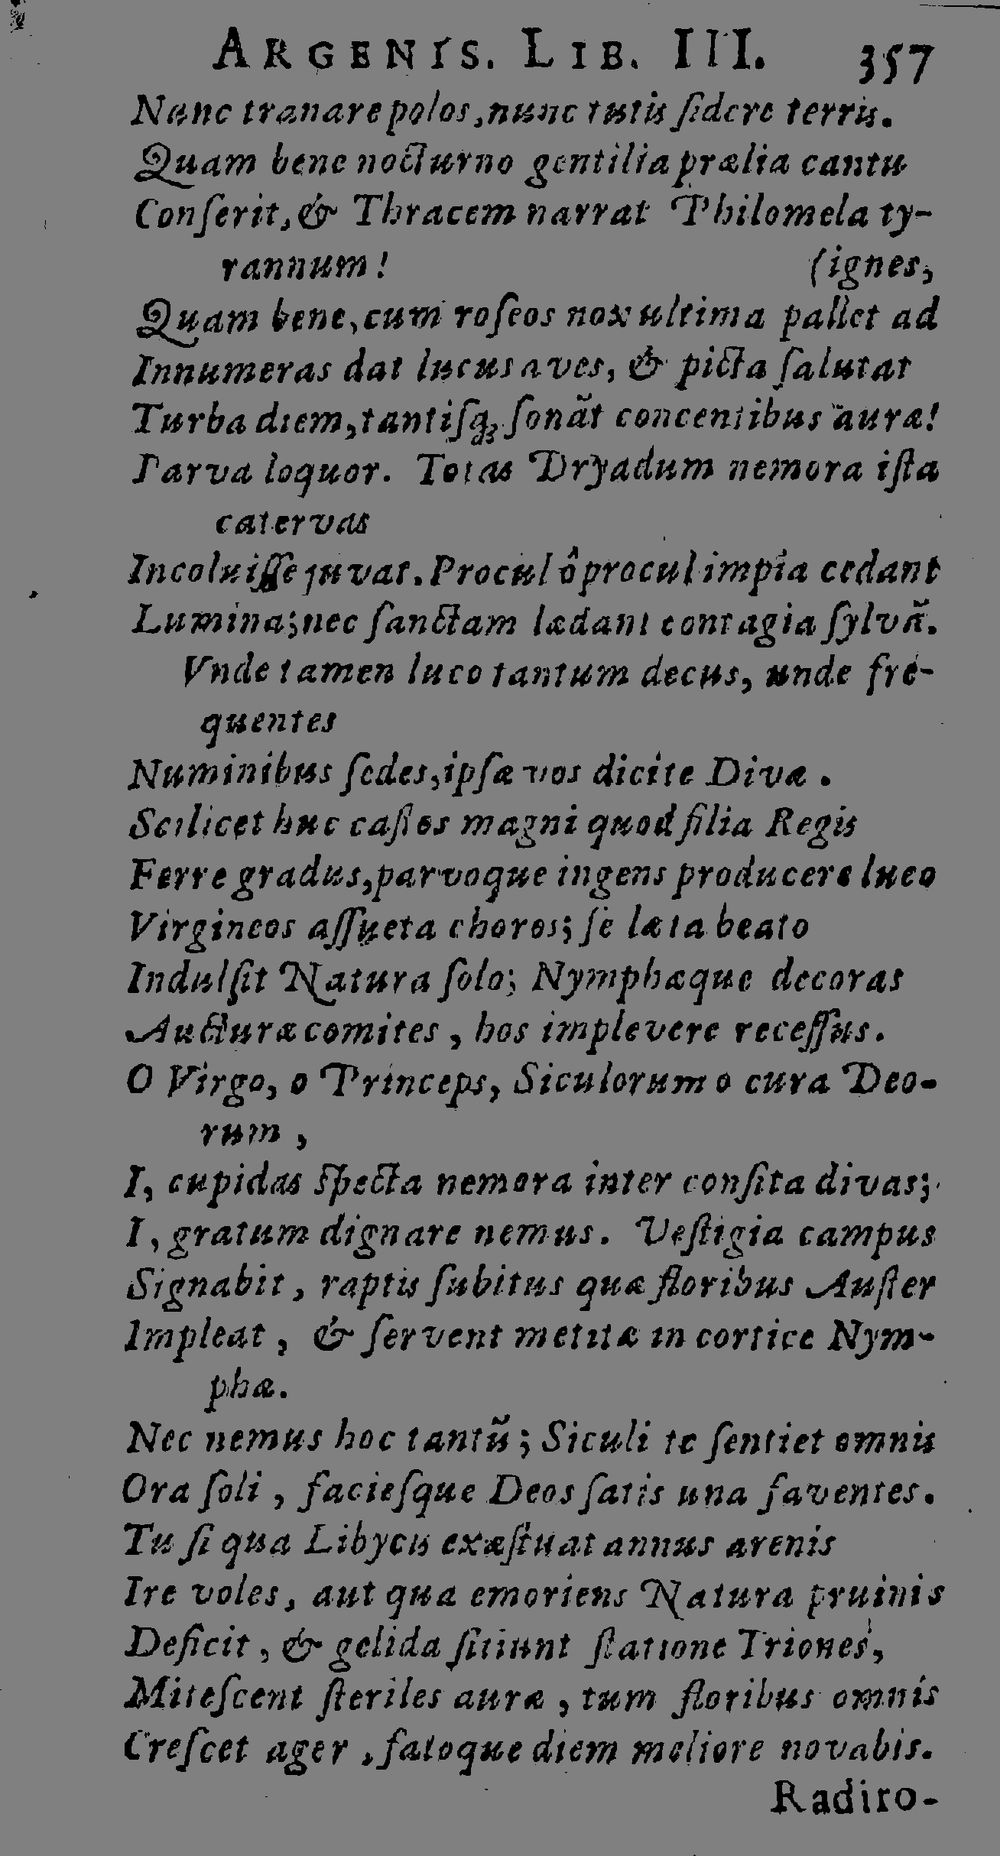 ARGENIS. LIB. III. 357
Nunc tranare polos, nunc tutis ſidere terris.
Quam bene nocturno gentilia prælia cantu
Conſerit, & Thracem narrat Philomela ty-
rannum! (ignes,
Quam bene, cum roſeos nox ultima pallet ad
Innumeras dat lucus aves, & picta ſalutat
Turba diem, tantiſq; ſonãt concentibus auræ!
Parva loquor. Totas Dryadum nemora iſta
catervas
Incoluiſſe juvat. Procul ô procul impia cedant
Lumina; nec ſanctam lædant contagia ſylvã.
Vnde tamen luco tantum decus, unde fre-
quentes
Numinibus ſedes, ipſæ vos dicite Divæ.
Scilicet huc caſtos magni quod filia Regis
Ferre gradus, parvoque ingens producere luco
Virgineos aſſueta choros; ſe læta beato
Indulſit Natura ſolo; Nymphæque decoras
Aucturæ comites, hos implevere receſſus.
O Virgo, o Princeps, Siculorum o cura Deo-
rum,
I, cupidas ſpecta nemora inter conſita divas;
I, gratum dignare nemus. Veſtigia campus
Signabit, raptis ſubitus quæ floribus Auſter
Impleat, & ſervent metitæ in cortice Nym-
phæ.
Nec nemus hoc tantũ; Siculi te ſentiet omnis
Ora ſoli, facieſque Deos ſatis una faventes.
Tu ſi qua Libycis exæſtuat annus arenis
Ire voles, aut qua emoriens Natura pruinis
Deficit, & gelida ſitiunt ſtatione Triones,
Miteſcent ſteriles auræ, tum floribus omnis
Creſcet ager, fatoque diem meliore novabis.
Radiro-